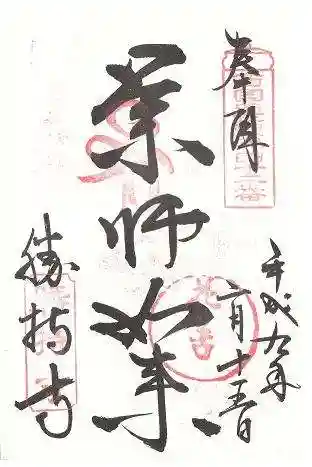 奉拝
平成九年
二月十五日
薬師如来
勝持寺